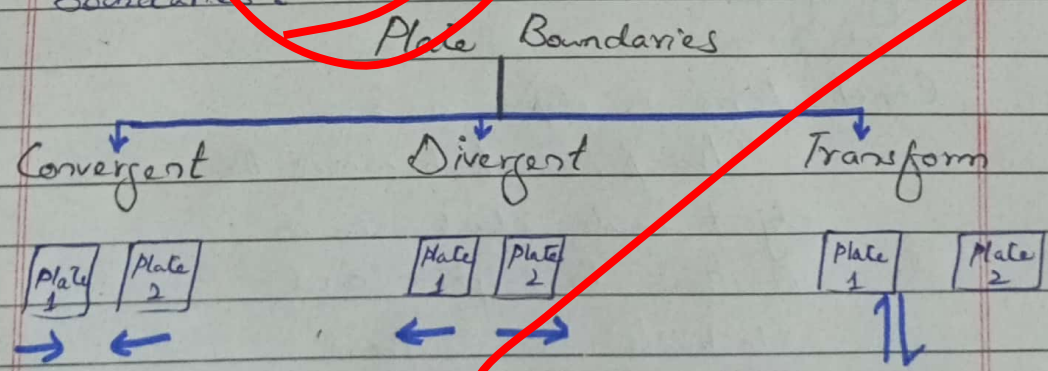 Boundaries
Plate Boundaries
Convergent Divergent Transform
Plate 1 Plate 2 Plate 1 Plate 2 Plate 1 Plate 2